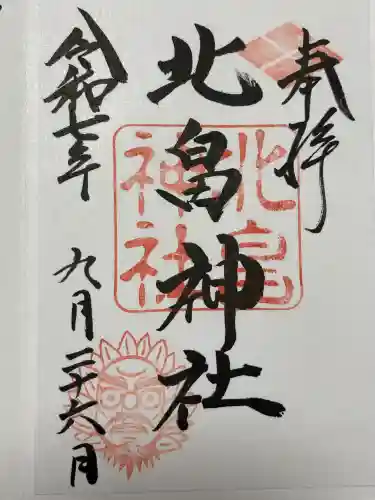 奉拝
北畠神社
令和七年
九月二十六月
北畠
神社